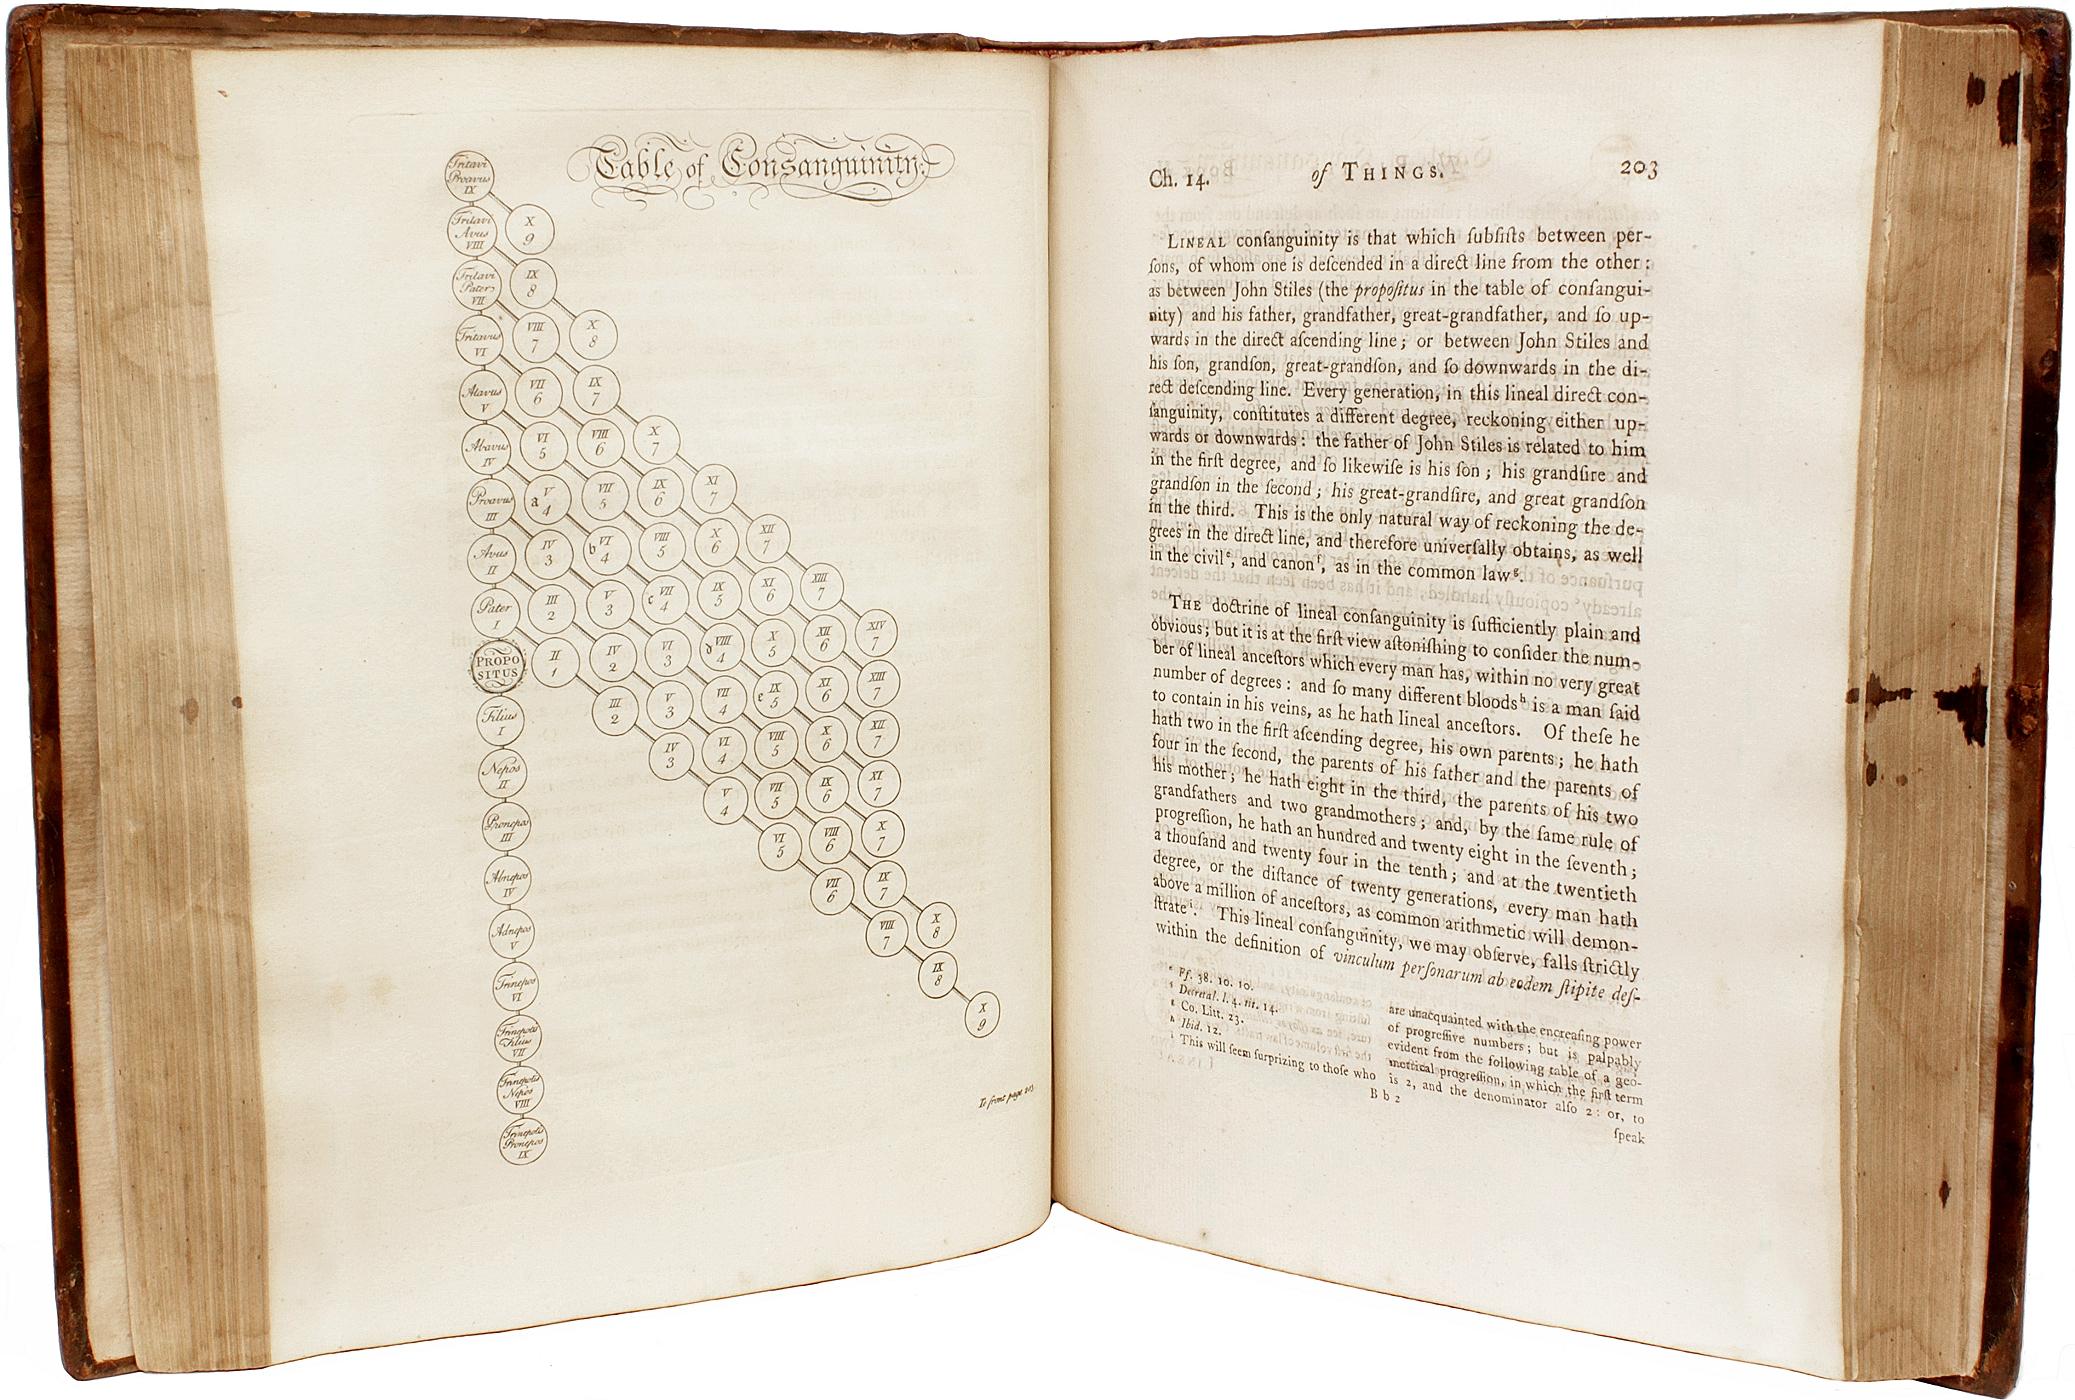 Table of Consanguinity.
Tritavi
Proavus
IX
Tritavi
Avus
VIII
Tritavi
Pater
VII
Tritavus
VI
Atavus
V
Abavus
IV
Proavus
III
Avus
II
Pater
I
PROPO
SITUS
Filius
I
Nepos
II
Pronepos
III
Abnepos
IV
Adnepos
V
Trinepos
VI
Trinepotis
Filius
VII
Trinepotis
Nepos
VIII
Trinepotis
Pronepos
IX
X
9
IX
8
VIII
7
VII
6
VI
5
a V
4
IV
3
III
2
II
1
X
8
IX
7
VIII
6
VII
5
b VI
4
V
3
IV
2
III
2
X
7
IX
6
VIII
5
c VII
4
VI
3
V
3
IV
3
XI
7
X
6
IX
5
d VIII
4
VII
4
VI
4
V
4
XII
7
XI
6
X
5
e IX
5
VIII
5
VII
5
VI
5
XIII
7
XII
6
XI
6
X
6
IX
6
VIII
6
VII
6
XIV
7
XIII
7
XII
7
XI
7
X
7
IX
7
VIII
7
X
8
IX
8
X
9
To front page 203.
Ch. 14. of THINGS. 203
LINEAL conſanguinity is that which ſubſiſts between per-
ſons, of whom one is deſcended in a direct line from the other:
as between John Stiles (the propoſitus in the table of conſangui-
nity) and his father, grandfather, great-grandfather, and ſo up-
wards in the direct aſcending line; or between John Stiles and
his ſon, grandſon, great-grandſon, and ſo downwards in the di-
rect deſcending line. Every generation, in this lineal direct con-
ſanguinity, conſtitutes a different degree, reckoning either up-
wards or downwards: the father of John Stiles is related to him
in the firſt degree, and ſo likewiſe is his ſon; his grandſire and
grandſon in the ſecond; his great-grandſire, and great grandſon
in the third. This is the only natural way of reckoning the de-
grees in the direct line, and therefore univerſally obtains, as well
in the civil e, and canon f, as in the common law g.
THE doctrine of lineal conſanguinity is ſufficiently plain and
obvious; but it is at the firſt view aſtoniſhing to conſider the num-
ber of lineal anceſtors which every man has, within no very great
number of degrees: and ſo many different bloods h is a man ſaid
to contain in his veins, as he hath lineal anceſtors. Of theſe he
hath two in the firſt aſcending degree, his own parents; he hath
four in the ſecond, the parents of his father and the parents of
his mother; he hath eight in the third, the parents of his two
grandfathers and two grandmothers; and, by the ſame rule of
progreſſion, he hath an hundred and twenty eight in the ſeventh;
a thouſand and twenty four in the tenth; and at the twentieth
degree, or the diſtance of twenty generations, every man hath
above a million of anceſtors, as common arithmetic will demon-
ſtrate i. This lineal conſanguinity, we may obſerve, falls ſtrictly
within the definition of vinculum perſonarum ab eodem ſtipite deſ-
e Ff. 38. 10. 10.
f Decretal. l. 4. tit. 14.
g Co. Litt. 23.
h Ibid. 12.
i This will ſeem ſurprizing to thoſe who
are unacquainted with the encreaſing power
of progreſſive numbers; but is palpably
evident from the following table of a geo-
metrical progreſſion, in which the firſt term
is 2, and the denominator alſo 2: or, to
B b 2
ſpeak